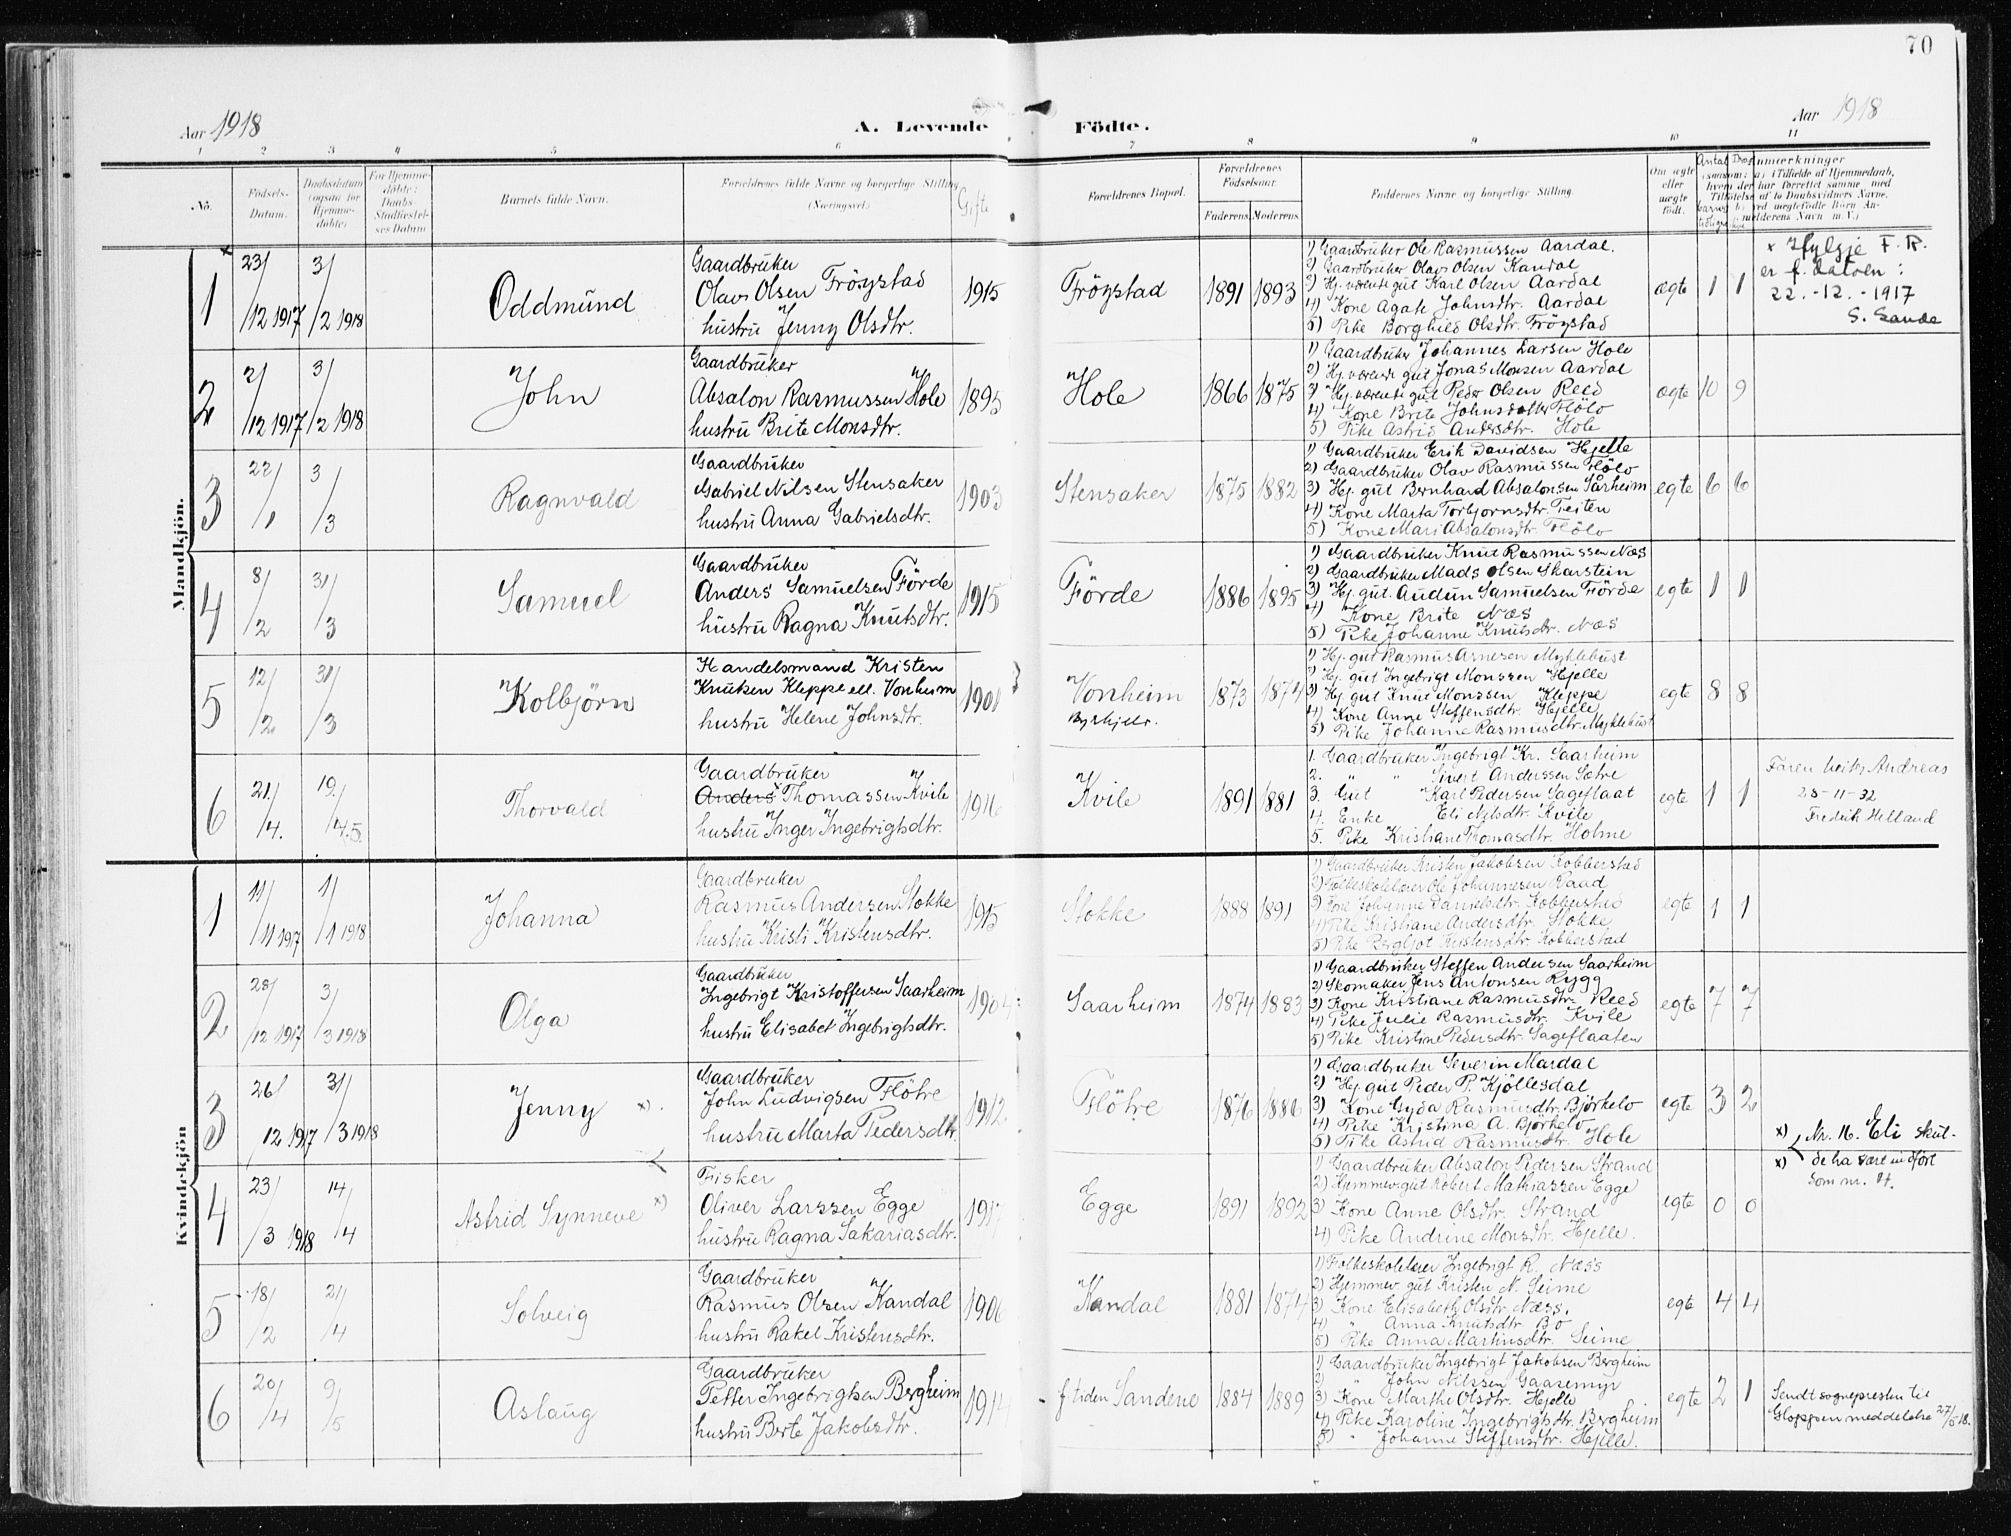 70
Aar 1918
A. Levende Födte.
Aar 1918
1 2 3 4 5 6 7 8 9 10 11
No.
Födsels-Datum.
Daabsdatum (ogsaa for Hjemme-döbte)
For Hjemme-döbte: Daabs-Stadfæstel-ses Datum
Barnets fulde Navn.
Forældrenes fulde Navne og borgerlige Stilling (Næringsvei.)
Gifte
Forældrenes Bopæl.
Forældrenes Födselsaar.
Faderens. Moderens.
Faddernes Navne og borgerlige Stilling.
Om ægte eller uægte födt.
Mandkjön.
1
23/12 1917
3/2 1918
Oddmund
Gaardbruker
Olavs Olsen Fröystad
hustru Jenny Olsdtr.
1915
Fröystad
1891 1893
1) Gaardbruker Ole Rasmussen Aardal.
2) Gaardbruker Olavs Olsen Kandal
3) Hj. værende gut Karl Olsen Aardal
4) Kone Agate Johnsdtr. Aardal
5) Pike Borghild Olsdtr. Fröystad
ægte 1 1
x Ifylgje F. R.
er f. datoen:
22.-12.-1917
S. Sande
2
2/12 1917
3/2 1918
John
Gaardbruker
Absalon Rasmussen Hole
hustru Brite Monsdtr.
1895
Hole
1866 1875
1) Gaardbruker Johannes Larsen Hole
2) Hj. værende gut Jonas Monsen Aardal
3) Hj. værende gut Peder Olsen Reed
4) Kone Brite Johnsdatter Flölo
5) Pike Astrid Andersdtr. Hole
ægte 10 9
3
22/1
3/3
Ragnvald
Gaardbruker
Gabriel Nilsen Stensaker
hustru Anna Gabrielsdtr.
1903
Stensaker
1875 1882
1) Gaardbruker Erik Davidsen Hjelle
2) Gaardbruker Olav Rasmussen Flölo
3) Hj. gut Bernhard Absalonsen Sårheim
4) Kone Marta Torbjornsdtr. Teiten
5) Kone Mari Absalonsdtr. Flölo
egte 6 6
4
8/2
31/3
Samuel
Gaardbruker
Anders Samuelsen Förde
hustru Ragna Knutsdtr.
1915
Förde
1886 1895
1) Gaardbruker Knut Rasmussen Næs
2) Gaardbruker Mads Olsen Skarstein
3) Hj. gut. Audun Samuelsen Förde
4) Kone Brite Næs
5) Pike Johanne Knutsdtr. Næs
egte 1 1
5
12/2
31/3
Kolbjörn
Handelsmand Kristen
Knutsen Kleppe ell. Vonheim
hustru Helene Johnsdtr.
1901
Vonheim
Byrkjelo.
1873 1874
1) Hj. gut Rasmus Arnesen Myklebust
2) Hj. gut Ingebrigt Monssen Hjelle
3) Hj gut Knut Monssen Kleppe
4) Kone Anne Steffensdtr. Hjelle
5) Pike Johanne Rasmusdtr. Myklebust
egte 8 8
6
21./4.
19./4.5.
Thorvald
Gaardbruker
Anders Thomassen Kvile
hustru Inger Ingebrigtsdtr.
1916
Kvile
1891 1881
1. Gaardbruker Ingebrigt Kr. Saarheim
2. " " Sivert Anderssen Sætre
3. Gut Karl Pedersen Sageflaat
4. Enke Eli Nilsdtr. Kvile
5. Pike Kristiane Thomasdtr. Holme
egte 1 1
Faren heiter Andreas
28-11-32
Fredrik Helland
Kvindekjön
1
11/11 1917
1/1 1918
Johanna
Gaardbruker
Rasmus Andersen Stokke
hustru Kristi Kristensdtr.
1915
Stokke
1888 1891
1) Gaardbruker Kristen Jakobsen Kobberstad
2) Folkeskolelærer Ole Johannesen Raad
3) Kone Johanne Danielsdtr. Kobberstad
4) Pike Kristiane Andersdtr. Stokke
5) Pike Bergljot Kristensdtr. Kobberstad
egte 1 1
2
28/12 1917
3/3 1918
Olga
Gaardbruker
Ingebrigt Kristoffersen Saarheim
hustru Elisabet Ingebrigtsdtr.
1904
Saarheim
1874 1883
1) Gaardbruker Steffen Andersen Saarheim
2) Skomaker Jens Antonsen Rygg
3) Kone Kristiane Rasmusdtr. Reed
4) Pike Julie Rasmusdtr. Kvile
5) Pike Kristine Pedersdtr. Sageflaaten
egte 7 7
3
26/12 1917
31/3 1918
Jenny x).
Gaardbruker
John Ludvigsen Flöhre
hustru Marta Pedersdtr.
1912
Flöhre
1876 1886
1) Gaardbruker Severin Mardal
2) Hj. gut Peder P. Kjöllesdal
3) Kone Gyda Rasmusdtr. Björkelo
4) Pike Kristina A. Björkelo
5) Pike Astrid Rasmusdtr. Hole
egte 3 2
x) Nr. 16. Eli skul-
x) de ha vært indfört
som nr. 4.
4
23/3 1918
14/4
Astrid Synneve x)
Fisker
Oliver Larssen Egge
hustru Ragna Sakariasdtr.
1917
Egge
1891 1892
1) Gaardbruker Absalon Pedersen Strand
2) Hjemmev. gut Robert Mathiassen Egge
3) Kone Anne Olsdtr. Strand
4) Pike Andrine Monsdtr. Hjelle.
egte 0 0
5
18/2
21/4
Solveig
Gaardbruker
Rasmus Olsen Kandal
hustru Rakel Kristensdtr.
1906
Kandal
1881 1874
1) Folkeskolelærer Ingebrigt R. Næss
2) Hjemmev. gut Kristen N. Seime
3) Kone Elisabeth Olsdtr. Næss.
4) " Anna Knutsdtr. Bö
5) Pike Anna Martinusdtr. Seime
egte 4 4
6
20/4
9/5
Aslaug
Gaardbruker
Petter Ingebrigtsen Bergheim
hustru Berte Jakobsdtr.
1914
f. tiden Sandene
1884 1889
1) Gaardbruker Ingebrigt Jakobsen Bergheim
2) " John Nilssen Gaasemyr
3) Kone Marthe Olsdtr. Hjelle
4) Pike Karoline Ingebrigtsdtr. Bergheim
5) " Johanne Steffensdtr. Hjelle.
egte 2 1
Sendt sognepresten til
Gloppen meddelelse 27/5 18.